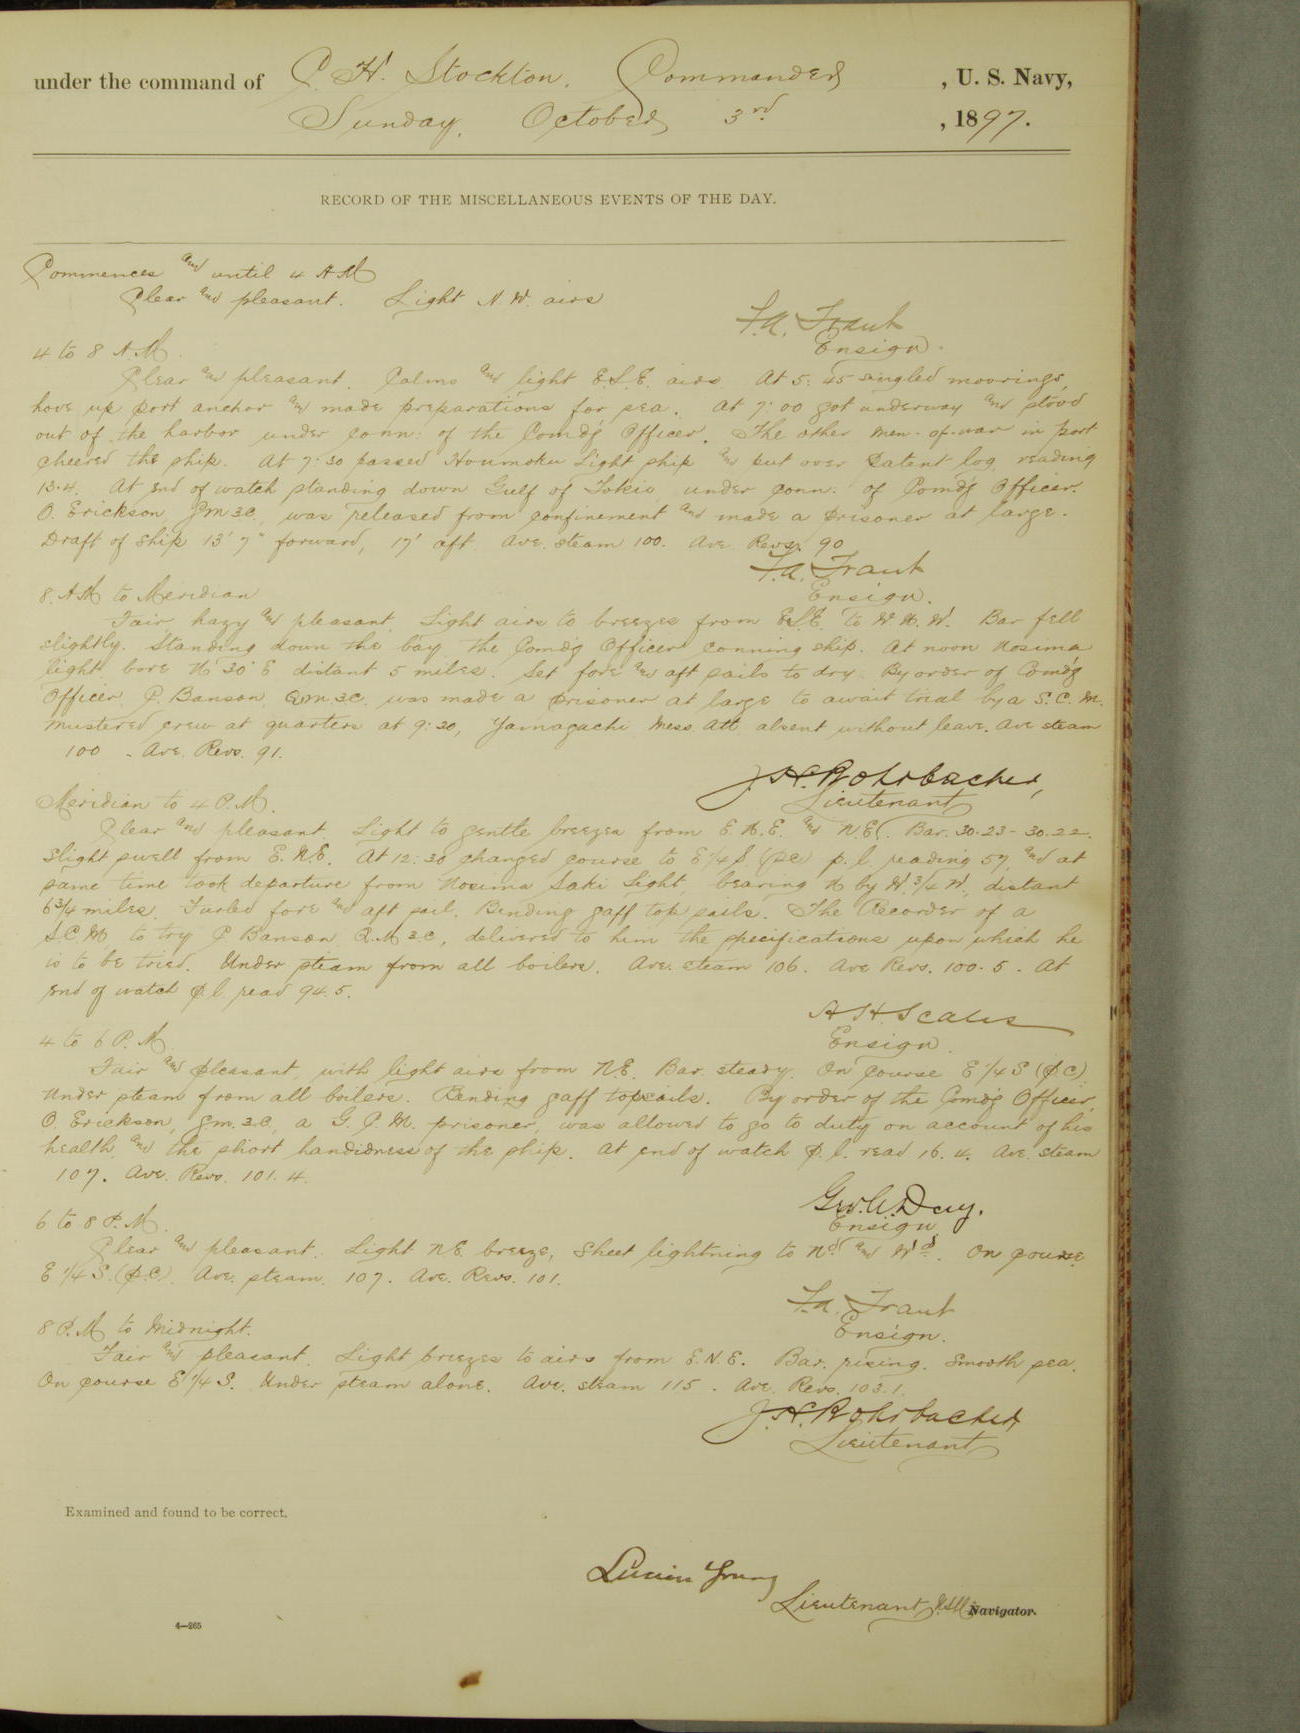 under the command of C. H. Stockton, Commander, U. S. Navy,
Sunday, October 3rd, 1897.
RECORD OF THE MISCELLANEOUS EVENTS OF THE DAY.
Commences and until 4 A.M
Clear and pleasant. Light N.W. airs
Ensign.
4 to 8 A.M.
Clear and pleasant. Calms and light E.S.E. airs. At 5:45 singled moorings,
hove up port anchor and made preparations for sea. At 7:00 got underway and stood
out of the harbor under conn: of the Comd'g Officer. The other men-of-war in port
cheered the ship. At 7:30 passed Houmoku Light ship and put over patent log, reading
13.4. At end of watch standing down Gulf of Tokio under conn: of Comd'g Officer.
O. Erickson Gm 3c., was released from confinement and made a prisoner at large.
Draft of ship 13' 7" forward, 17' aft. Ave. steam 100. Ave. Revs. 90
Ensign.
8 A.M to Meridian
Fair, hazy and pleasant. Light airs to breezes from E.S.E. to W.N.W. Bar fell
slightly. Standing down the bay, the Comd'g Officer conning ship. At noon Nosima
light bore N 30° E distant 5 miles. Set fore and aft sails to dry. By order of Comd'g
Officer P. Banson Q.M. 3C. was made a prisoner at large to await trial by a S.C.M.
Mustered crew at quarters at 9:30, Yamagachi Mess Att absent without leave. Ave steam
100. Ave. Revs. 91.
J. H. Rohrbacher,
Lieutenant
Meridian to 4 P.M.
Clear and pleasant. Light to gentle breezes from E.N.E. and N.E. Bar. 30.23-30.22.
Slight swell from E.N.E. At 12:30 changed course to E 1/4 S (p.c.) p.l. reading 57, and at
same time took departure from Nosima Saki Light, bearing N by W 3/4 W, distant
6 3/4 miles. Furled fore and aft sail. Bending gaff top sails. The Recorder of a
S.C.M. to try P Banson Q.M. 3c, delivered to him the specifications upon which he
is to be tried. Under steam from all boilers. Ave. steam 106. Ave Revs. 100.5. At
end of watch p.l. read 94.5.
A H Scales
Ensign
4 to 6 P.M
Fair and pleasant, with light airs from N.E. Bar. steady. On course E 1/4 S (p.c)
under steam from all boilers. Bending gaff topsails. By order of the Comd'g Officer,
O. Erickson, Gm. 3.C., a G.C.M. prisoner, was allowed to go to duty on account of his
health, and the short handidness of the ship. At end of watch p.l. read 16.4. Ave. steam
107. Ave. Revs. 101.4.
Geo. C. Day.
Ensign
6 to 8 P.M.
Clear and pleasant. Light N.E. breeze, Sheet lightning to Nd and Wd. On course
E 1/4 S. (p.c). Ave. steam. 107. Ave. Revs. 101.
Ensign.
8 P.M to Midnight.
Fair and pleasant. Light breezes to airs from E.N.E. Bar. rising. Smooth sea.
On course E 1/4 S. Under steam alone. Ave. steam 115. Ave. Revs. 103.1.
J. H. Rohrbacher
Lieutenant
Examined and found to be correct.
Lucien Young
Lieutenant U.S.N. Navigator.
4—265